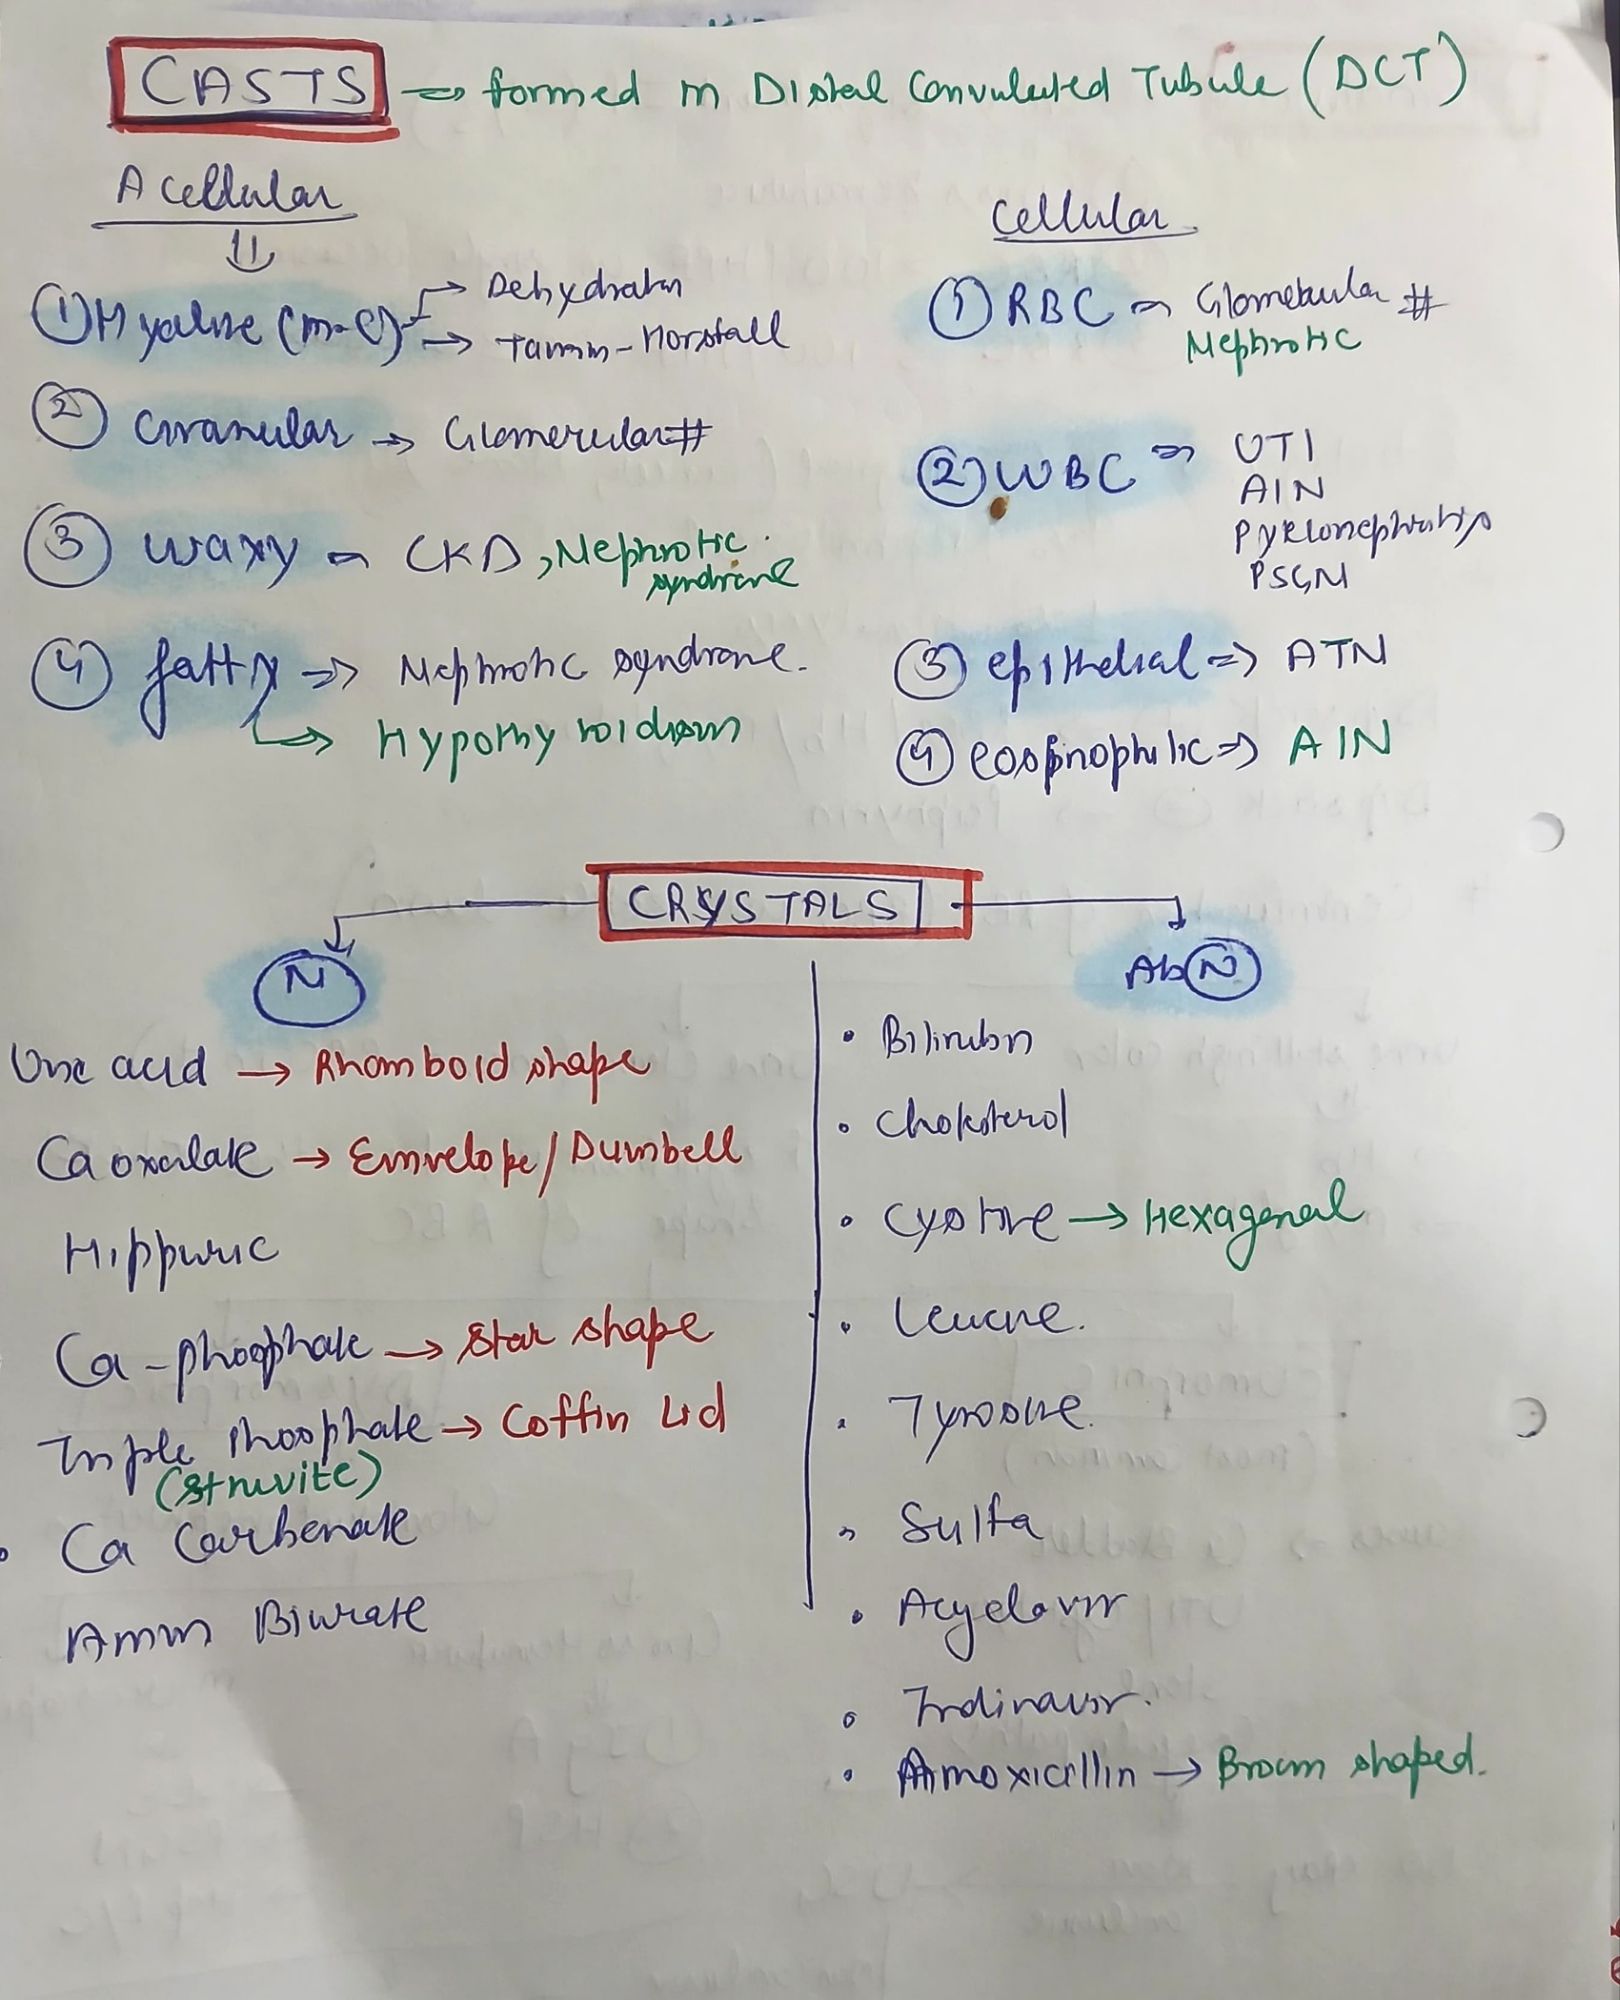 CASTS => formed in Distal Convoluted Tubule (DCT)
Acellular
① Hyaline (m-c) → Dehydration
→ Tamm-Horsfall
② Granular → Glomerular #
③ waxy => CKD, Nephrotic syndrome
④ fatty => Nephrotic syndrome.
→ Hypothyroidism
Cellular
① RBC => Glomerular #
Nephrotic
② WBC => UTI
AIN
Pyelonephritis
PSGN
③ epithelial => ATN
④ eosinophilic => AIN
CRYSTALS
N
Uric acid → Rhomboid shape
Ca oxalate → Envelope/Dumbell
Hippuric
Ca-phosphate → Star shape
Triple Phosphate → Coffin Lid
(struvite)
Ca Carbonate
Amm Biurate
Ab N
• Bilirubin
• Cholesterol
• Cystine → Hexagonal
• Leucine.
• Tyrosine.
• Sulfa
• Acyclovir
• Indinavir.
• Amoxicillin → Broom shaped.